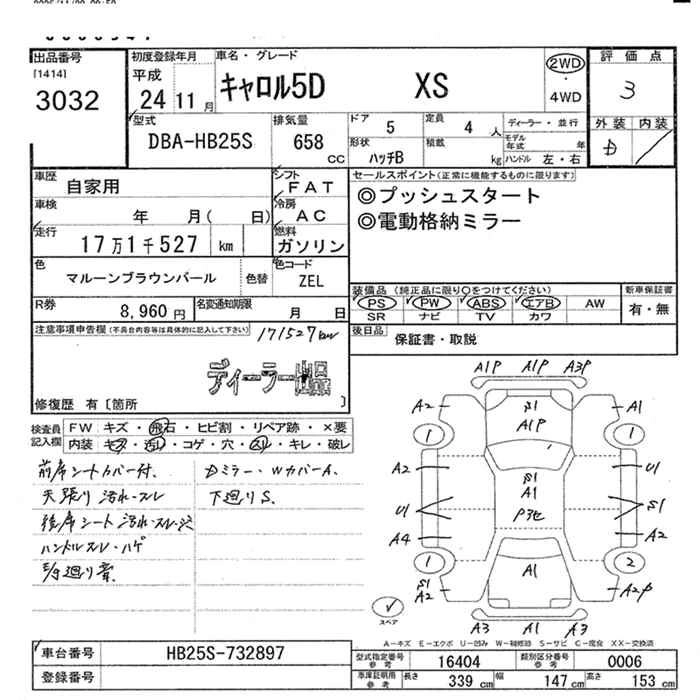 出品番号
[1414]
3032
初度登録年月
平成
24 11 月
車名・グレード
キャロル5D XS
2WD
・
4WD
評価点
3
外装 内装
D
型式
DBA-HB25S
排気量
658
CC
ドア 5
定員 4 人
ディーラー・並行
形状 ハッチB
積載 kg
モデル年式 年
ハンドル 左・右
車歴 自家用
シフト
FAT
車検 年 月( 日)
冷房
AC
走行 17万1千527 km
燃料
ガソリン
セールスポイント(正常に機能するものに限ります)
◎プッシュスタート
◎電動格納ミラー
色 マルーンブラウンパール 色替
色コード
ZEL
装備品 (純正品に限り○をつけてください)
PS PW ABS エアB AW
SR ナビ TV カワ
新車保証書
有・無
R券 8,960 円
名変通知期限 月 日
後日品 保証書・取説
注意事項申告欄(不具合内容等は具体的に記入して下さい)
171527km
ディーラー
修復歴 有〔箇所 〕
検査員記入欄
FW キズ・飛石・ヒビ割・リペア跡・×要
内装 キズ・汚れ・コゲ・穴・スリ・キレ・破レ
前席シートカバー付、
天張り汚れ・スレ
後席シート汚れ・スレ・
ハンドルスレ・ハゲ
Dミラー・WカバーA、
下廻りS、
A1P A1P A3P
A2 S1 A1
A1P
1 1
A2 S1 U1
A1
U1 P3 S1
A4 A2
1 2
S1
A2 A1 A2P
A3 A1 A3
スペア
A-キズ E-エクボ U-凹み W-補修跡 S-サビ C-腐食 XX-交換済
車台番号 HB25S-732897
登録番号
型式指定番号 参考 16404
類別区分番号 参考 0006
車庫証明用 参考 長さ 339 cm 幅 147 cm 高さ 153 cm